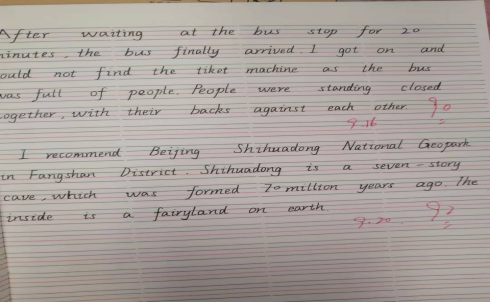 After waiting at the bus stop for 20
minutes, the bus finally arrived. I got on and
could not find the tiket machine as the bus
was full of people. People were standing closed
together, with their backs against each other. 90
9.16
I recommend Beijing Shihuadong National Geopark
in Fangshan District. Shihuadong is a seven-story
cave, which was formed 70 million years ago. The
inside is a fairyland on earth.
9.20. 92